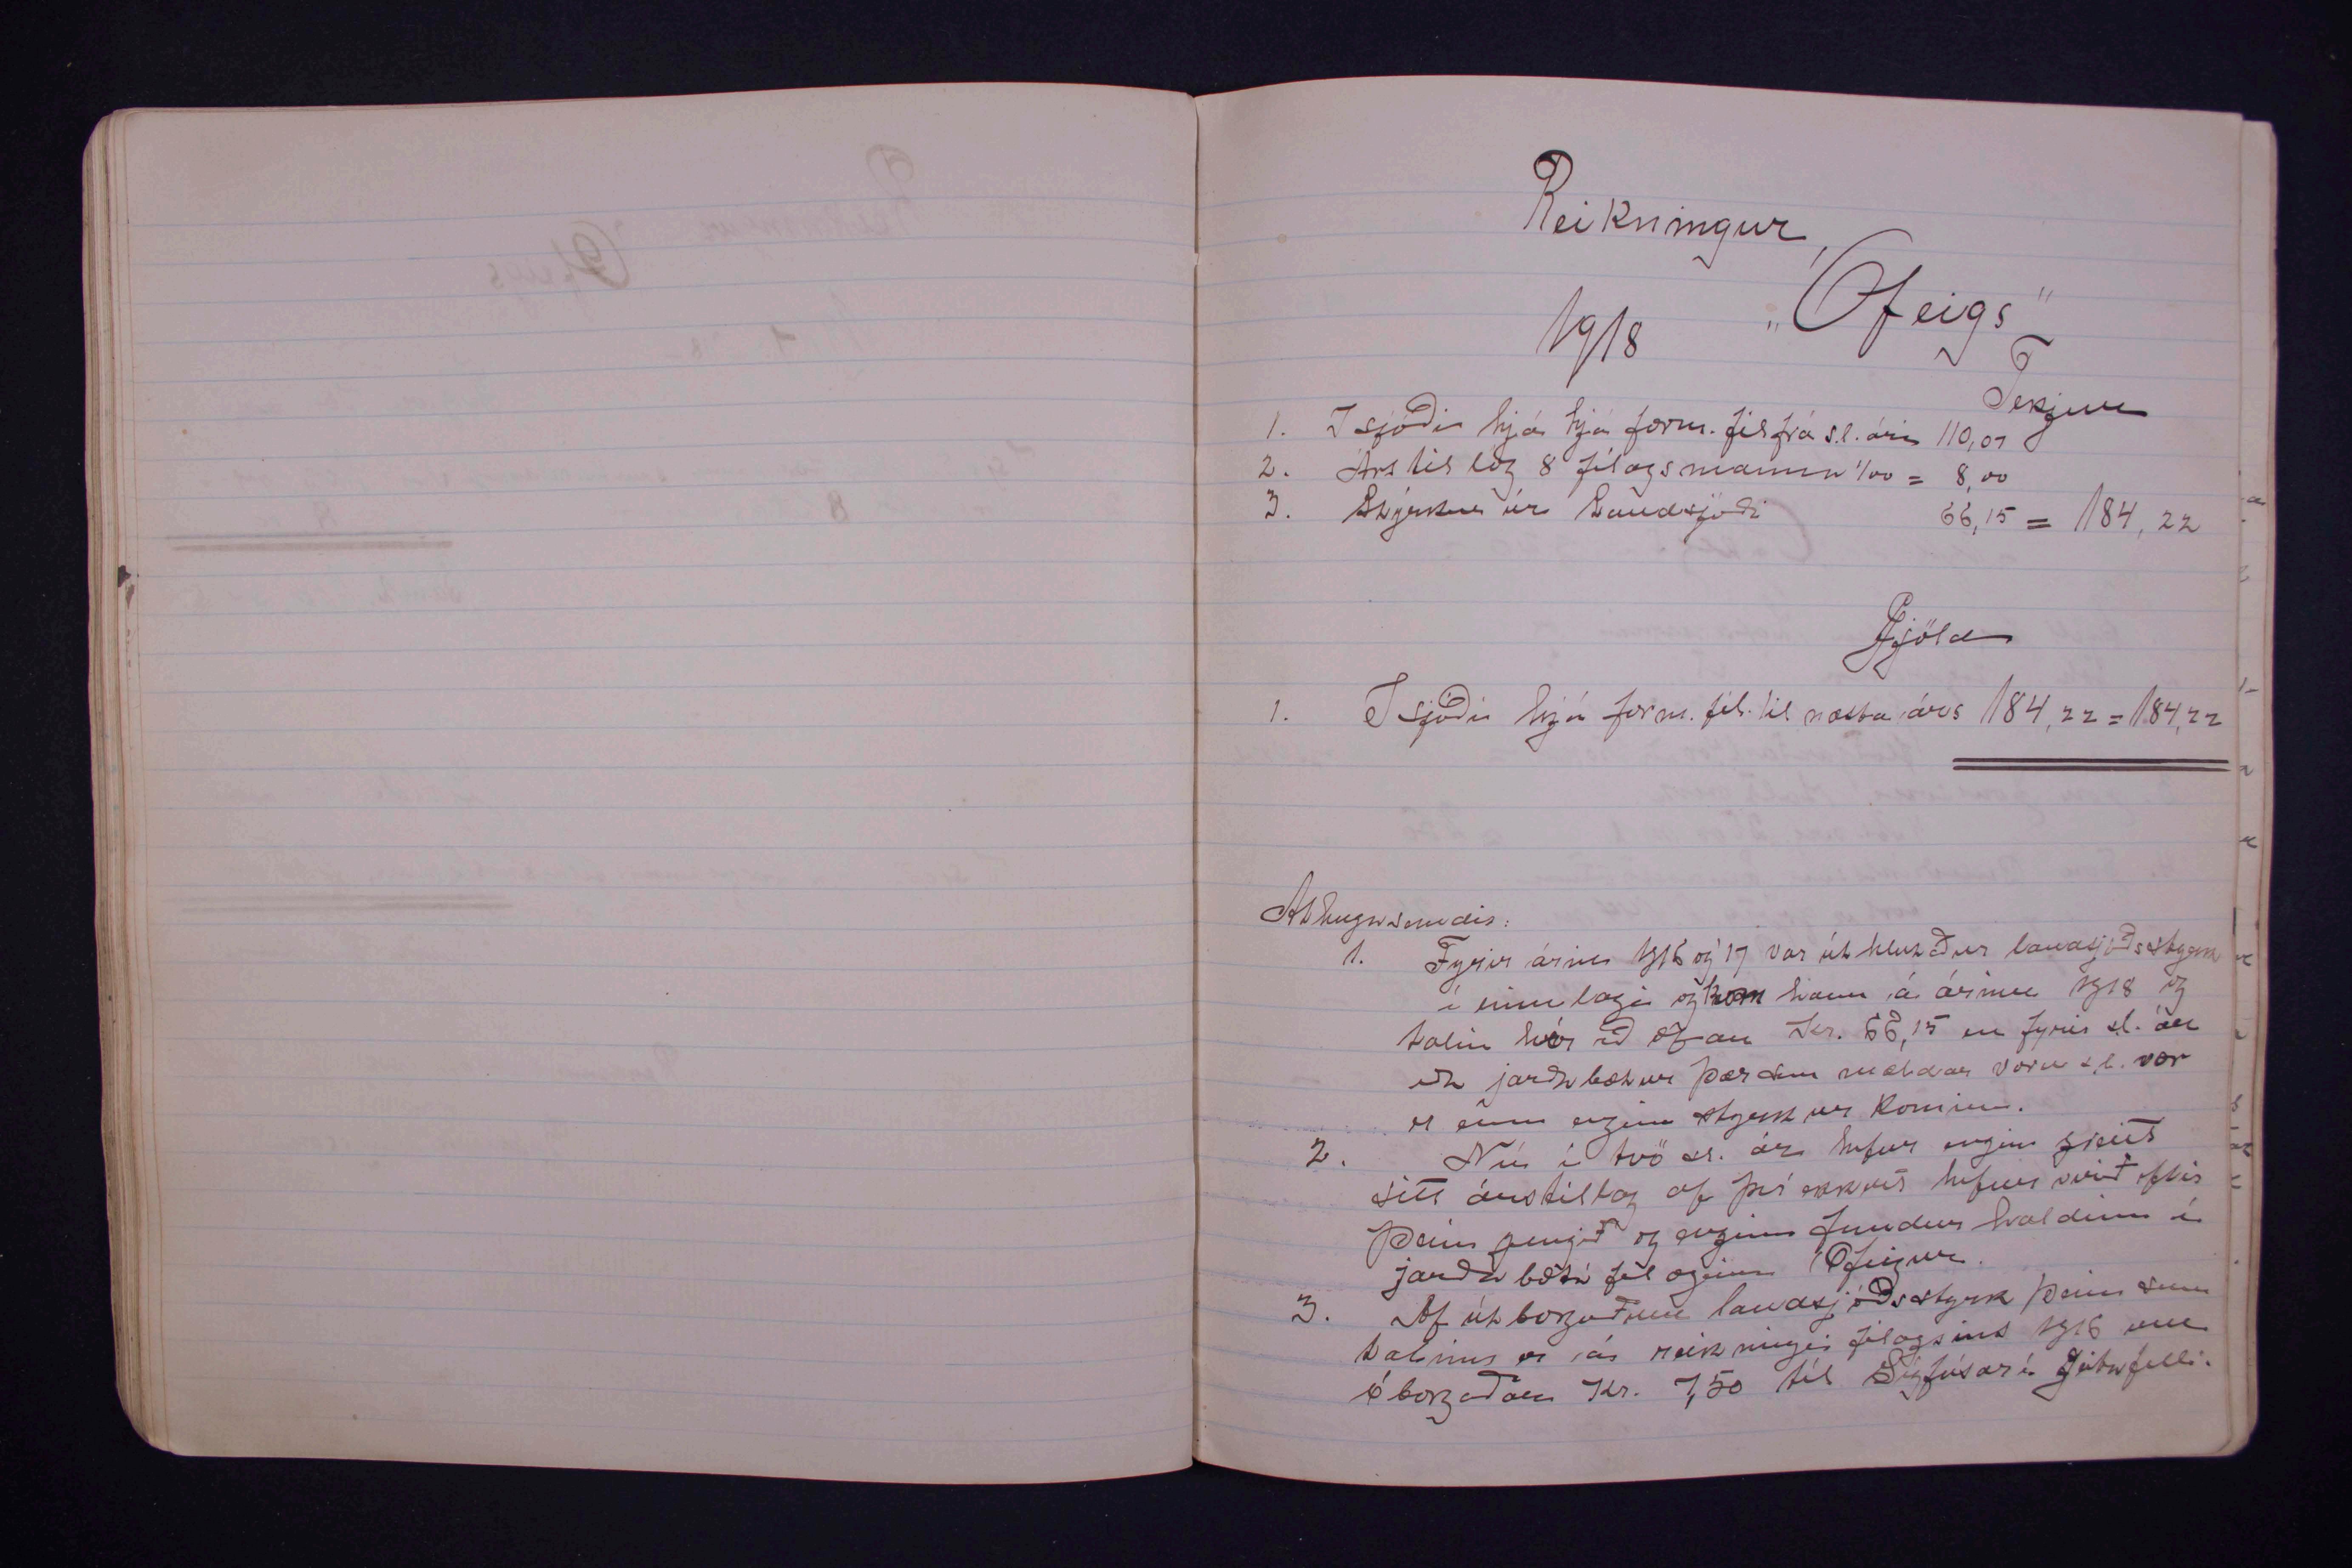 Reikningur
„Ófeigs"
1918
Tekjur
1. Í sjóði hjá hjá form. fél frá s.l. ári 110,07
2. Árs tillög 8 félagsmanna 1/00 = 8,00
3. Styrkur úr Landsjóði 66,15 = 184,22
Gjöld
1. Í sjóði hjá form. fél. til næsta árs 184,22 = 184,22
Athugasemdir:
1. Fyrir árin 1916 og 17 var úthlutaður landsjóðsstyrk
í einu lagi og kom hann á árinu 1918 og
talin hér að ofan Kr. 66,15 en fyrir s.l. ár
eða jarðabætur þær sem mældar voru s.l. vor
er enn enginn styrkur kominn.
2. Nú í tvö s.l. ár hefur engin greitt
sitt árstillag af því ekkert hefur verið eftir
þeim gengið og enginn fundur haldinn í
jarðabóta félaginu Ófeigur.
3. Af útborguðum landsjóðsstyrk þeim sem
talinn er á reikningi félagsins 1916 eru
óborgaðar Kr. 7,50 til Sigfúsar í